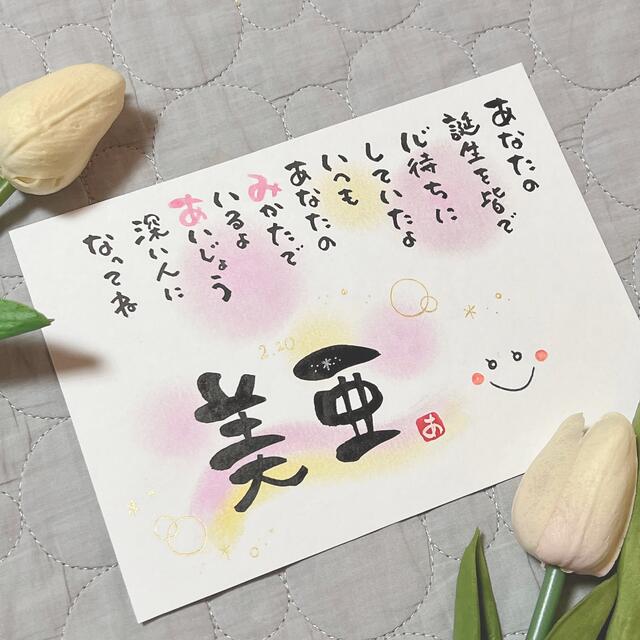 あなたの
誕生を皆で
心待ちに
していたよ
いつも
あなたの
みかたで
いるよ
あいじょう
深い人に
なってね
2.20
美亜
あ